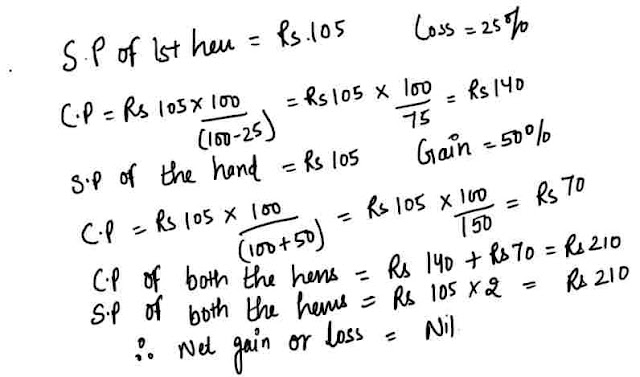 S.P of 1st hen = Rs.105 Loss = 25%
C.P = Rs 105 x 100/(100-25) = Rs 105 x 100/75 = Rs 140
S.P of the hand = Rs 105 Gain = 50%
C.P = Rs 105 x 100/(100+50) = Rs 105 x 100/150 = Rs 70
C.P of both the hens = Rs 140 + Rs 70 = Rs 210
S.P of both the hens = Rs 105 x 2 = Rs 210
∴ Net gain or loss = Nil